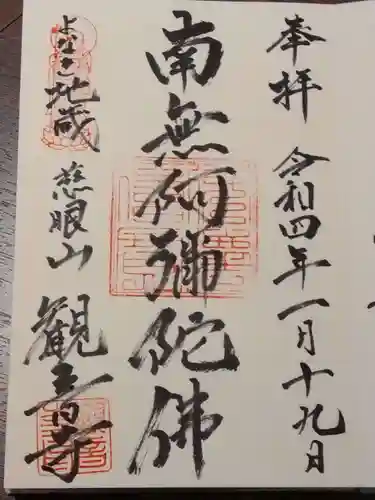 奉拝 令和四年一月十九日
南無阿弥陀佛
よなき地蔵 慈眼山 観音寺